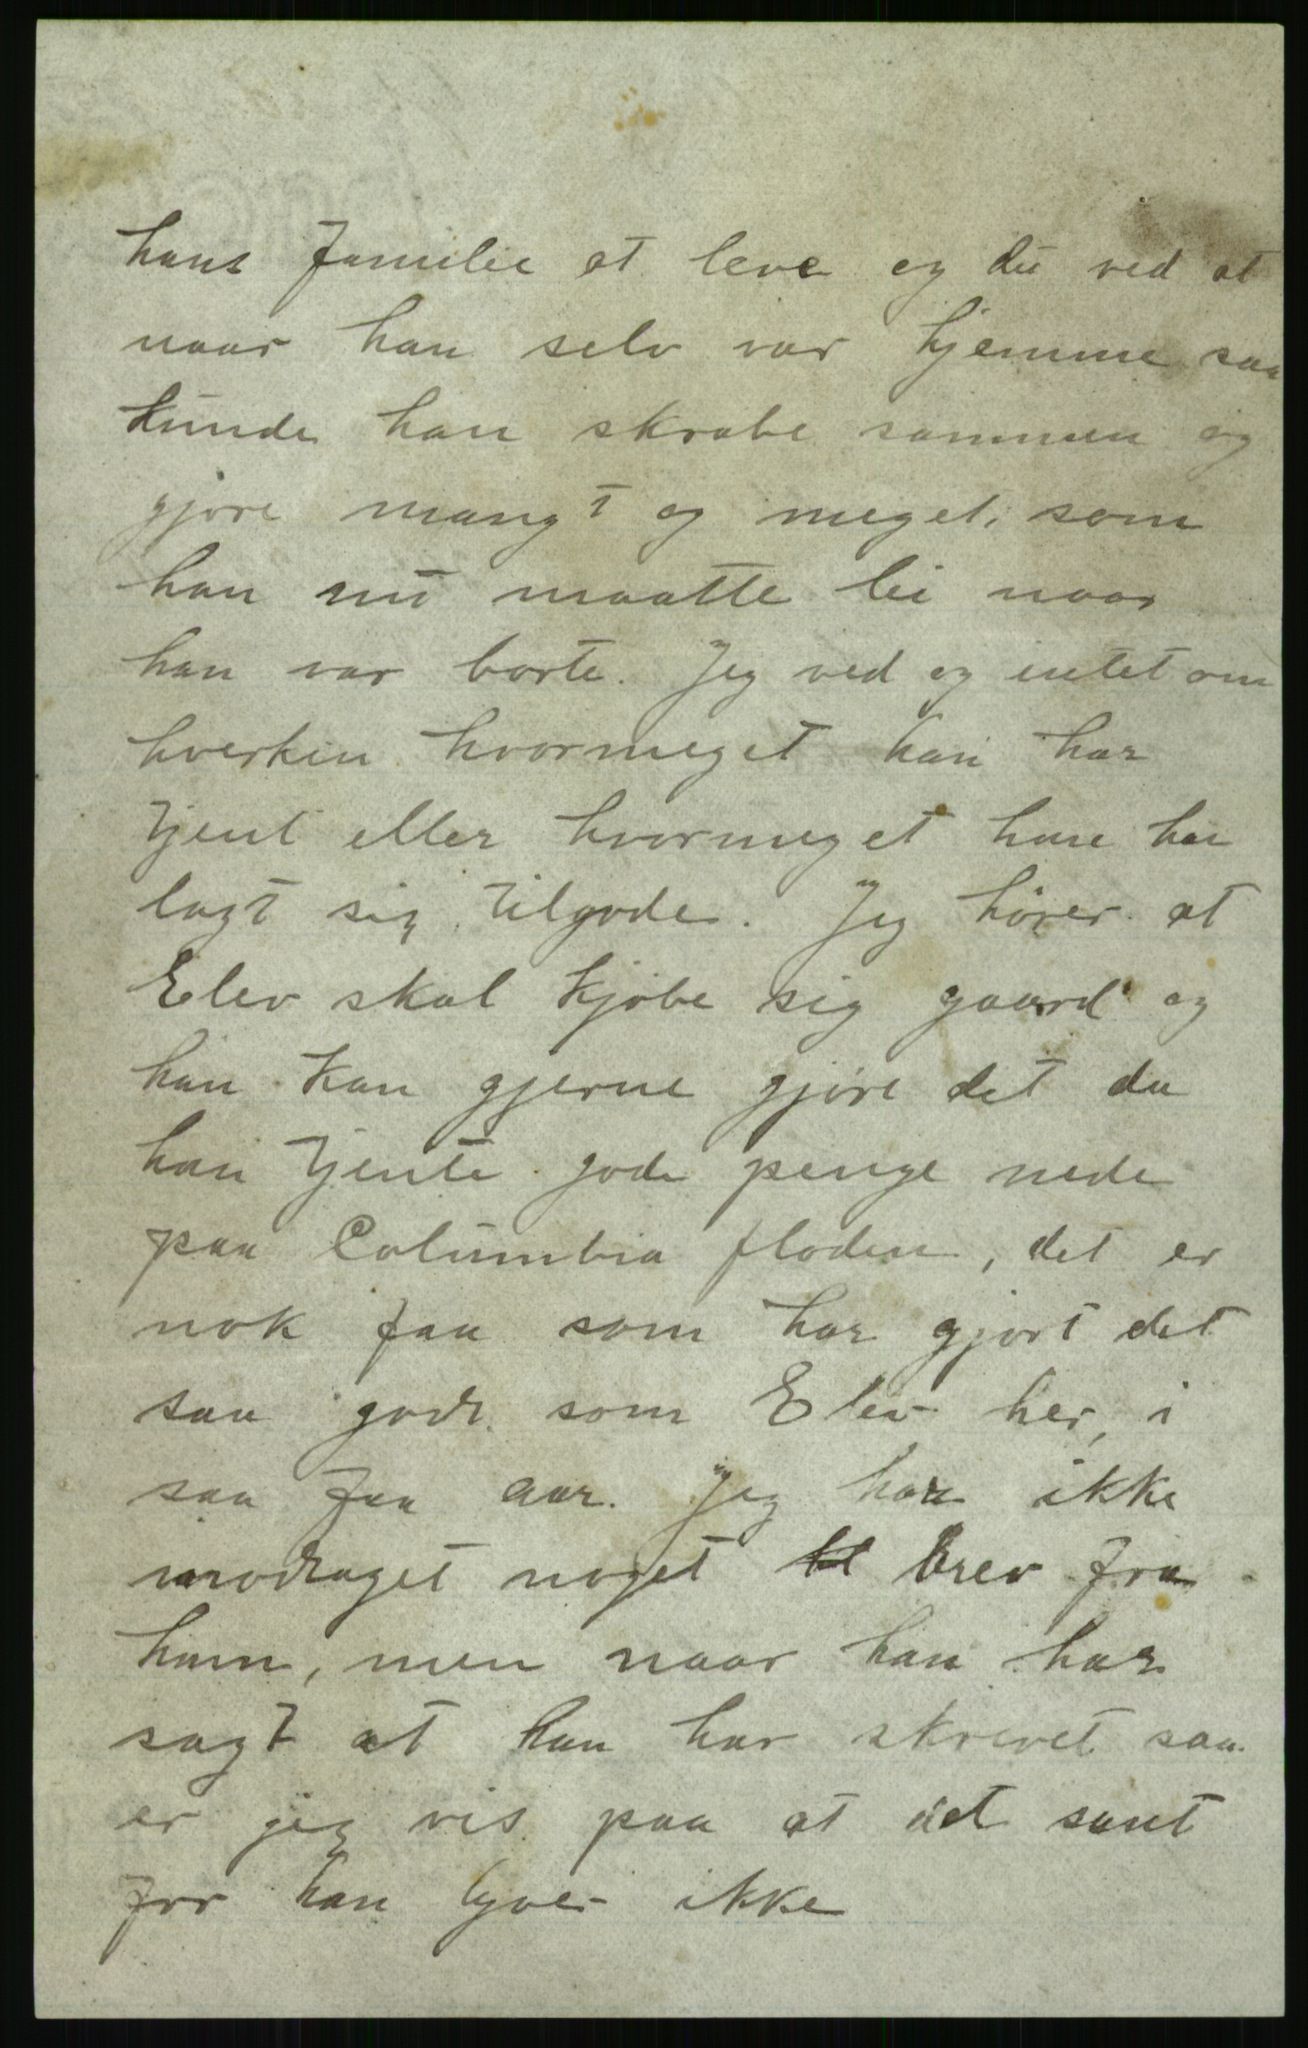 hans Familie at leve og du ved at
naar han selv var hjemme saa
kunde han skrabe sammen og
gjøre mangt og meget, som
han nu maatte lei naar
han var borte. Jeg ved og intet om
hverken hvormeget han har
tjent eller hvormeget han har
lagt sig tilgode. Jeg hører at
Elev skal kjøbe sig gaard og
han kan gjerne gjøre det da
han tjente gode penge nede
paa Columbia floden, det er
nok faa som har gjort det
saa godt som Elev her, i
saa faa aar. Jeg har ikke
modtaget noget brev fra
ham, men naar han har
sagt at han har skrevet saa
er jeg vis paa at det sant
for han lyver ikke